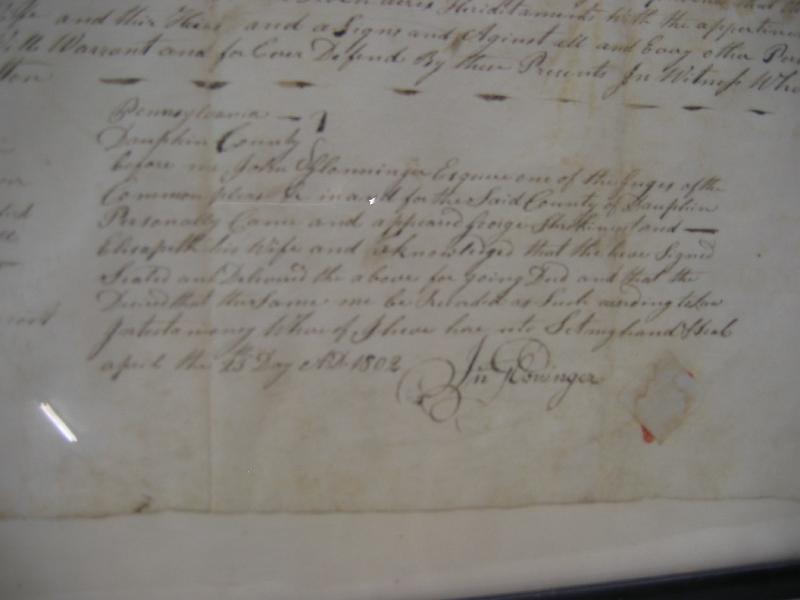 acres Heriditaments with the appertine
ife and their Heirs and a Signs and Aginst all and Evry other Pers
ll Warrant and for Ever Defend By these Presents In Witness Whe
Pennsylvania
Dauphin County
before me John Gloninger Esquire one of the Juges of the
Common pleas in and for the Said County of Dauphin
Personally Came and appeared George and
Elisabeth his Wife and aknowledged that the have Signed
Sealed and Delivered the above for going Deed and that the
Desired that the Same me be Recorded as Such acording to Law
In testamoney Whereof I have here unto Set my hand & Seal
april the 13 Day AD 1802
Jn Gloninger